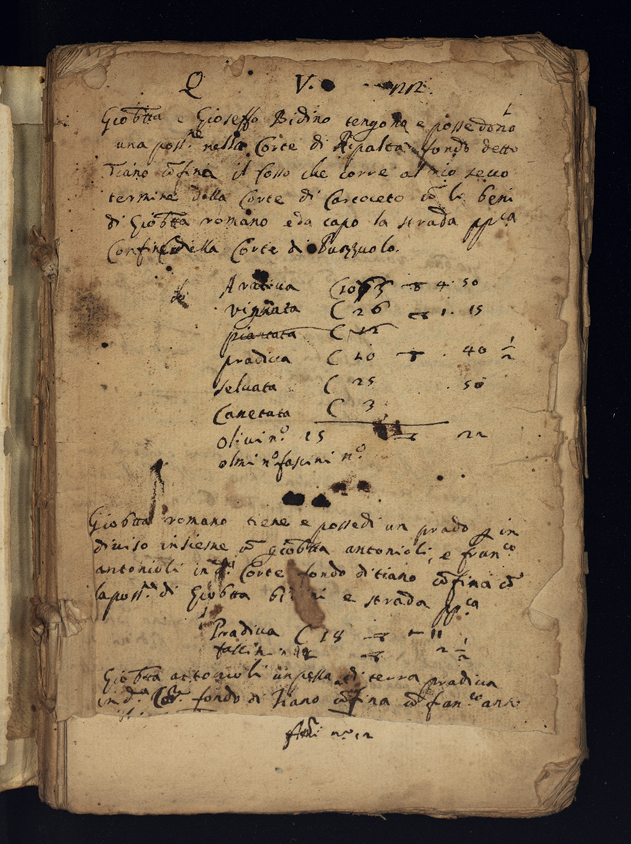 Q V.
Gio Btta e Gioseffo Bidino tengono e possedono
una poss.ne nella Corte di Ripalta fondo detto
Tiano cõfina il fosso che corre al rio secco
termine della Corte di Carcoceto cõ li beni
di Giobtta romano e da capo la strada ppca
Confine della Corte di Puzzuolo.
Arativa C 1063 4. 50
vignata C 26 1. 15
piantata C
pradiva C 40 40 1/2
selvata C 25 50
Canetata C 3
olivi n.o 15 22
olmi n.o fascini n.o
Giobtta romano tiene e possedi un prado p in
diviso insieme cõ giobtta antonioli, e franco
antonioli in d.a Corte fondo di tiano cõfina cõ
la poss.ne di Giobtta e strada ppca
Pradiva C 18 11
2 1/2
Giobtta antonioli un pessa di terra pradiva
in d.a fondo di Tiano cõfina cõ fran.co anto
n.o 12